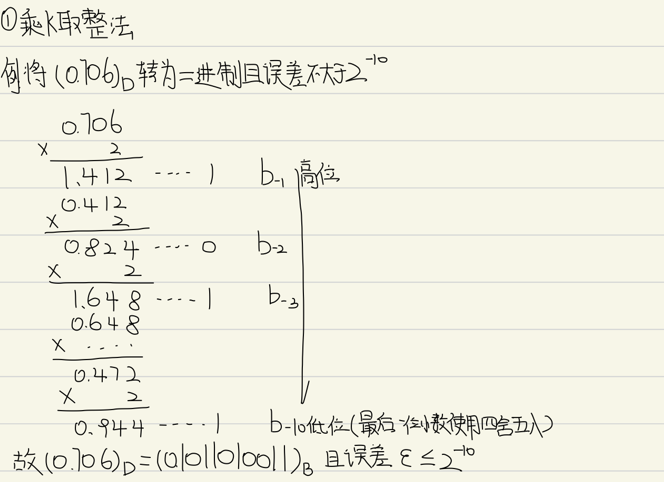 ①乘k取整法
例将(0.706)D转为二进制且误差不大于2^-10
0.706
× 2
1.412 ···· 1 b-1 高位
0.412
× 2
0.824 ···· 0 b-2
× 2
1.648 ···· 1 b-3
0.648
× ····
0.472
× 2
0.944 ···· 1 b-10低位(最后一位小数使用四舍五入)
故(0.706)D=(0.1011010011)B 且误差 ε≤2^-10